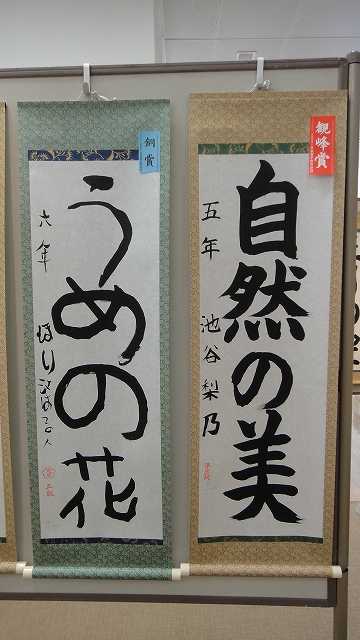 観峰賞
自然の美
五年 池谷梨乃
銅賞
うめの花
六年